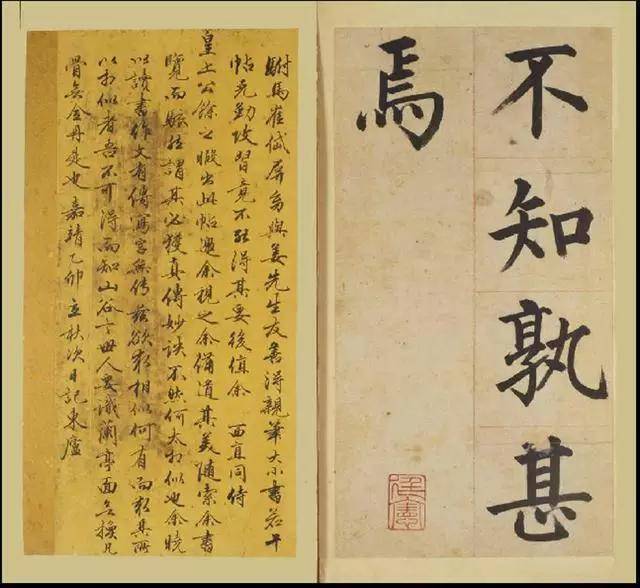 不知孰甚
焉
駙馬崔岱屏翁與姜先生友善得親筆大小書若干
帖尤勤攻習竟不能得其要後值余 西直同侍
皇上公餘之暇出此帖過余視之余備道其美隨索余書
覽而謂其必獲真傳妙訣不然何太相似也余曉
以讀書作文有傳寫字無傳茲欲求相似何有而求其所
以相似者吾不可得而知山谷云世人要識蘭亭面無換凡
骨無金丹是也 嘉靖乙卯立秋次日記東廬